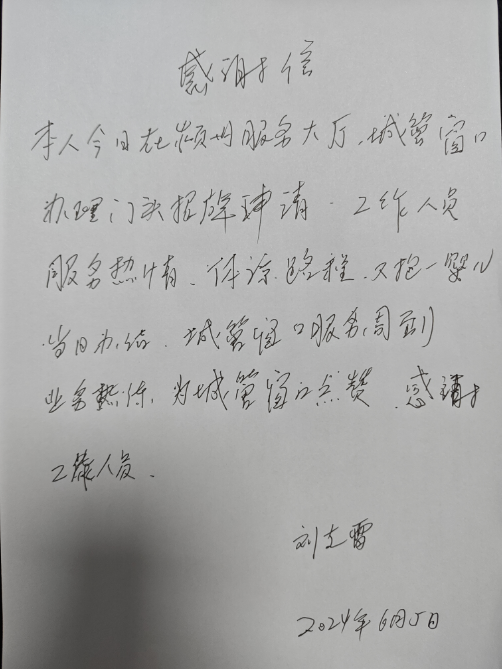 感谢信
本人今日在颍州服务大厅、城管窗口
办理门头招牌申请.工作人员
服务热情、体谅路程、又抱一婴儿
当日办结.城管窗口服务周到
业务熟练,为城管窗口点赞.感谢
工作人员.
刘志雷
2024年6月5日